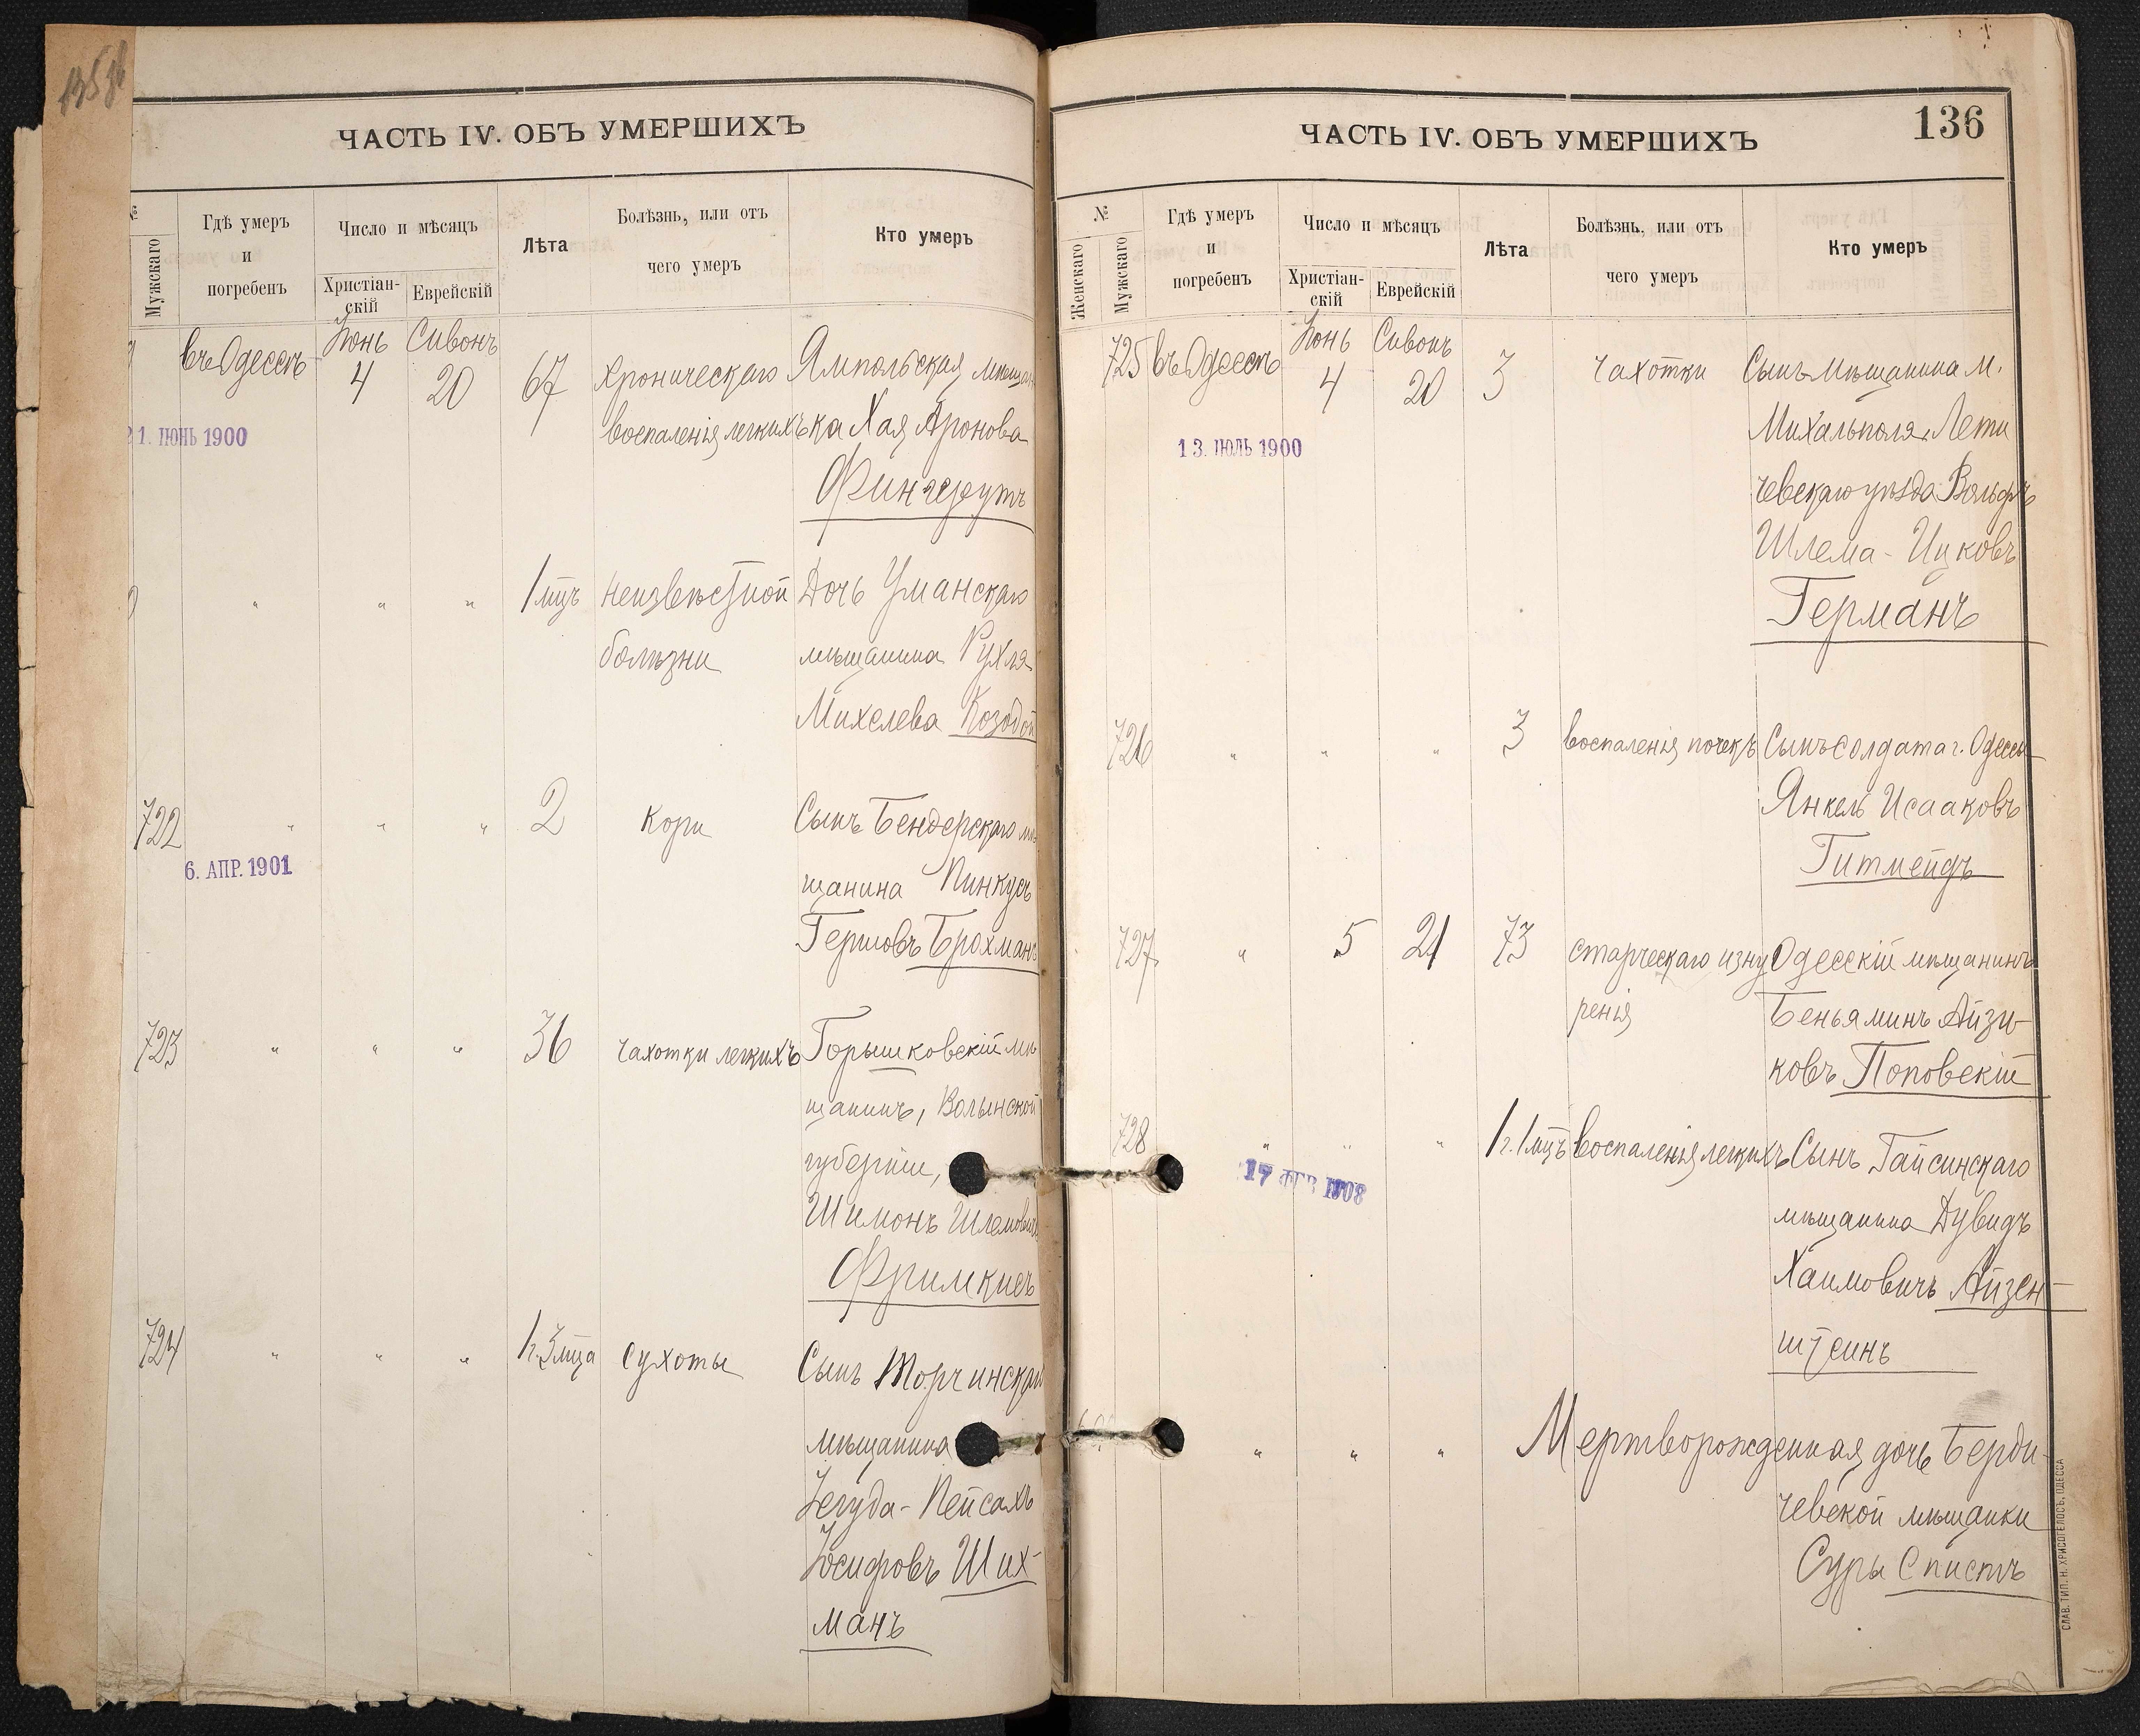 135 об
ЧАСТЬ IV. ОБЪ УМЕРШИХЪ
№
Мужскаго
Гдѣ умеръ
и
погребенъ
Число и мѣсяцъ
Христіан-
скій
Еврейскій
Лѣта
Болѣзнь, или отъ
чего умеръ
Кто умеръ
въ Одессѣ Іюнь Сивонъ
4 20 67 Хроническаго Ямпольская мѣщан
воспаленія легкихъ ка Хая Аронова
21. ІЮНЬ 1900
Фингерутъ
" " " 1 мцъ Неизвѣстной Дочь Уманскаго
болѣзни мѣщанина Рухля
Михелева Козодой
722 " " " 2 Кори Сынъ Бендерскаго мѣ-
6. АПР. 1901
щанина Пинкусъ
Гершовъ Брохманъ
723 " " " 36 чахотки легкихъ Горышковскій мѣ
щанинъ, Волынской
губерніи,
Шимонъ Шлемовичъ
Фримкисъ
724 " " " 1 г. 3 мца сухоты Сынъ Торчинскаго
мѣщанина
Іегуда-Пейсахъ
Іосифовъ Ших-
манъ
ЧАСТЬ IV. ОБЪ УМЕРШИХЪ
136
№
Женскаго
Мужскаго
Гдѣ умеръ
и
погребенъ
Число и мѣсяцъ
Христіан-
скій
Еврейскій
Лѣта
Болѣзнь, или отъ
чего умеръ
Кто умеръ
725 въ Одессѣ Іюнь Сивонъ
4 20 3 чахотки Сынъ мѣщанина м.
Михальполя, Лети
13. ІЮЛЬ 1900
чевскаго уѣзда Вольфъ
Шлема-Ицковъ
Германъ
726 " " " 3 воспаленія почекъ Сынъ солдата г. Одессы
Янкель Исааковъ
Гитмейдъ
727 " 5 21 73 старческаго изну Одесскій мѣщанинъ
ренія Беньяминъ Айзи-
ковъ Поповскій
728 " " " 1 г. 1 мцъ воспаленія легкихъ Сынъ Гайсинскаго
17 ФЕВ 1908
мѣщанина Дувидъ
Хаимовичъ Айзен-
штейнъ
" " " Мертворожденная дочь Берди-
чевской мѣщанки
Суры Спистъ
СЛАВ. ТИП. Н. ХРИСОГЕЛОСЪ, ОДЕССА